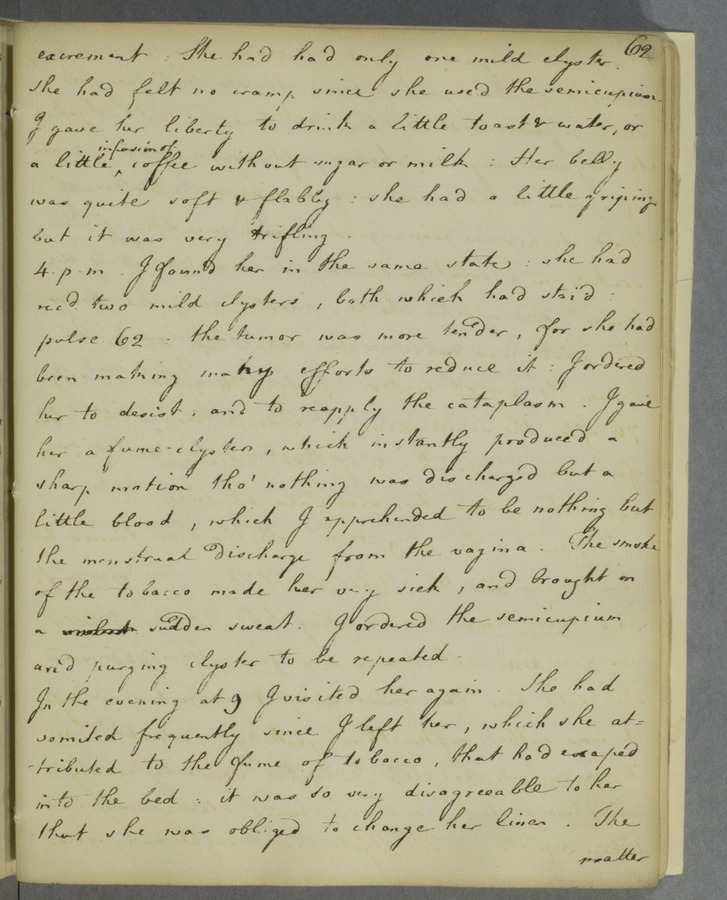 62
excrement : She had had only one mild clyster.
she had felt no cramp since she used the semicupium.
I gave her liberty to drink a little toast & water, or
infusion of
a little ^ coffee without sugar or milk : Her belly
was quite soft & flabby : she had a little griping
but it was very trifling .
4. p. m . I found her in the same state : she had
rec'd two mild clysters , both which had staid :
pulse 62 : the tumor was more tender, for she had
been making many efforts to reduce it : I ordered
her to desist, and to reapply the cataplasm . I gave
her a fume-clyster , which instantly produced a
sharp motion tho' nothing was discharged but a
little blood , which I apprehended to be nothing but
the menstrual discharge from the vagina . The smoke
of the tobacco made her very sick , and brought on
a violent sudden sweat. I ordered the semicupium
and purging clyster to be repeated
In the evening at 9 I visited her again . She had
vomited frequently since I left her , which she at=
-tributed to the fume of tobacco , that had escaped
into the bed : it was so very disagreeable to her
that she was obliged to change her linen . The
matter